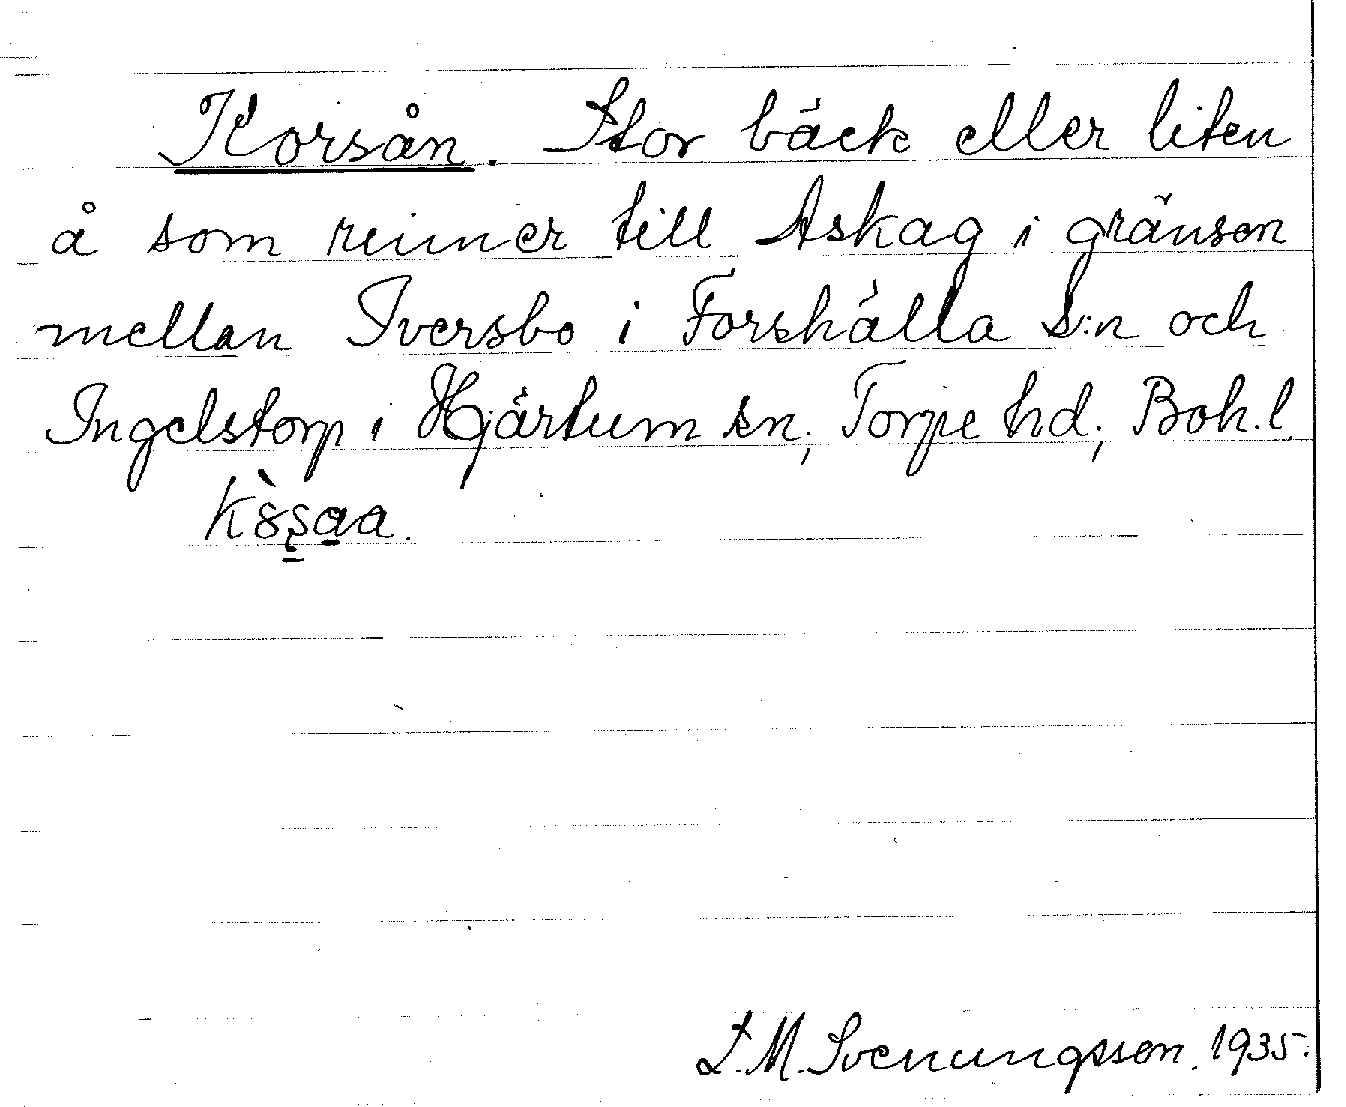 Korsån. Stor bäck eller liten
å som rinner till Askag i gränsen
mellan Iversbo i Forshälla s:n och
Ingelstorp i Hjärtum sn; Torpe hd; Boh.l.
S.M. Svenungsson. 1935.